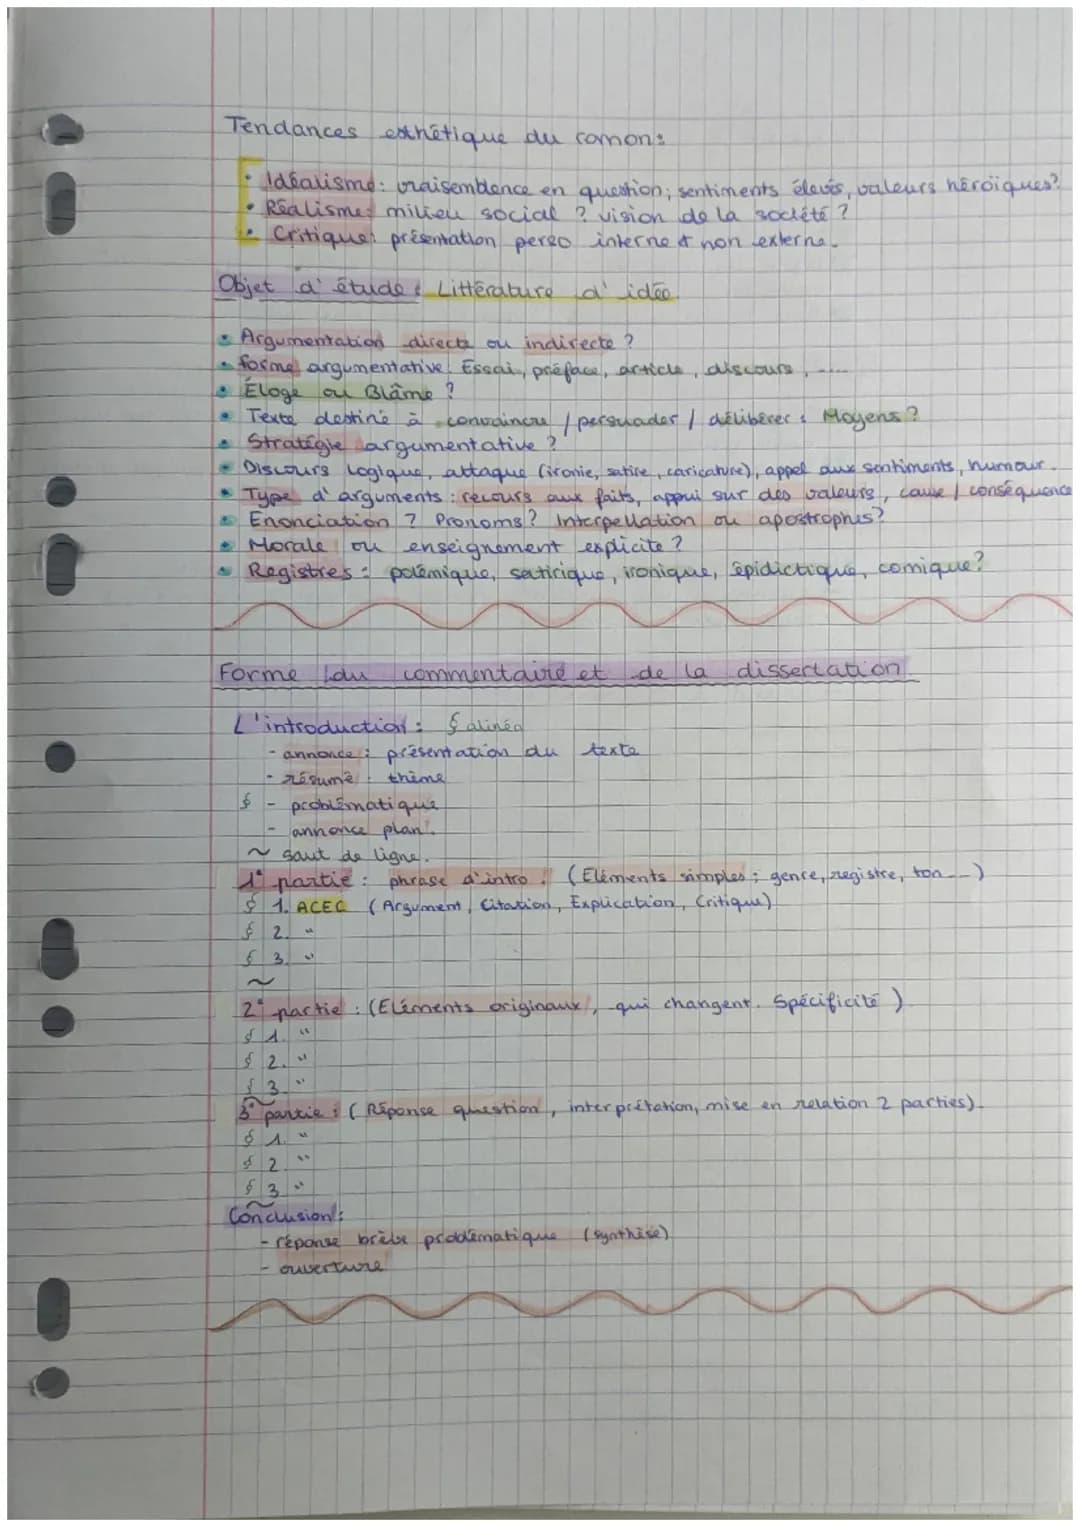 Tendances esthétique du roman:
• Idéalisme: vraisemblence en question; sentiments élevés, valeurs héroïques?
• Réalisme: milieu social ? vision de la société ?
• Critique: présentation perso interne & non externe.
Objet d'étude: Littérature d'idée
• Argumentation directe ou indirecte ?
• forme argumentative: Essai, préface, article, discours, ....
• Éloge ou Blâme ?
• Texte destiné à convaincre / persuader / délibérer: Moyens ?
• Stratégie argumentative ?
• Discours logique, attaque (ironie, satire, caricature), appel aux sentiments, humour.
• Type d'arguments: recours aux faits, appui sur des valeurs, cause / conséquence
• Enonciation ? Pronoms? Interpellation ou apostrophes?
• Morale ou enseignement explicite ?
• Registres: polémique, satirique, ironique, épidictique, comique?
Forme du commentaire et de la dissertation
L'introduction: § alinéa
- annonce: présentation du texte
- résumé: thème
§ - problématique
- annonce plan.
~ saut de ligne.
1° partie: phrase d'intro. (Eléments simples; genre, registre, ton...)
§ 1. ACEC (Argument, Citation, Explication, Critique)
§ 2. "
§ 3. "
~
2° partie: (Eléments originaux, qui changent. Spécificité)
§ 1. "
§ 2. "
§ 3. "
~
3° partie: (Réponse question, interprétation, mise en relation 2 parties).
§ 1. "
§ 2. "
§ 3. "
~
Conclusion:
- réponse brève problématique (synthèse)
- ouverture